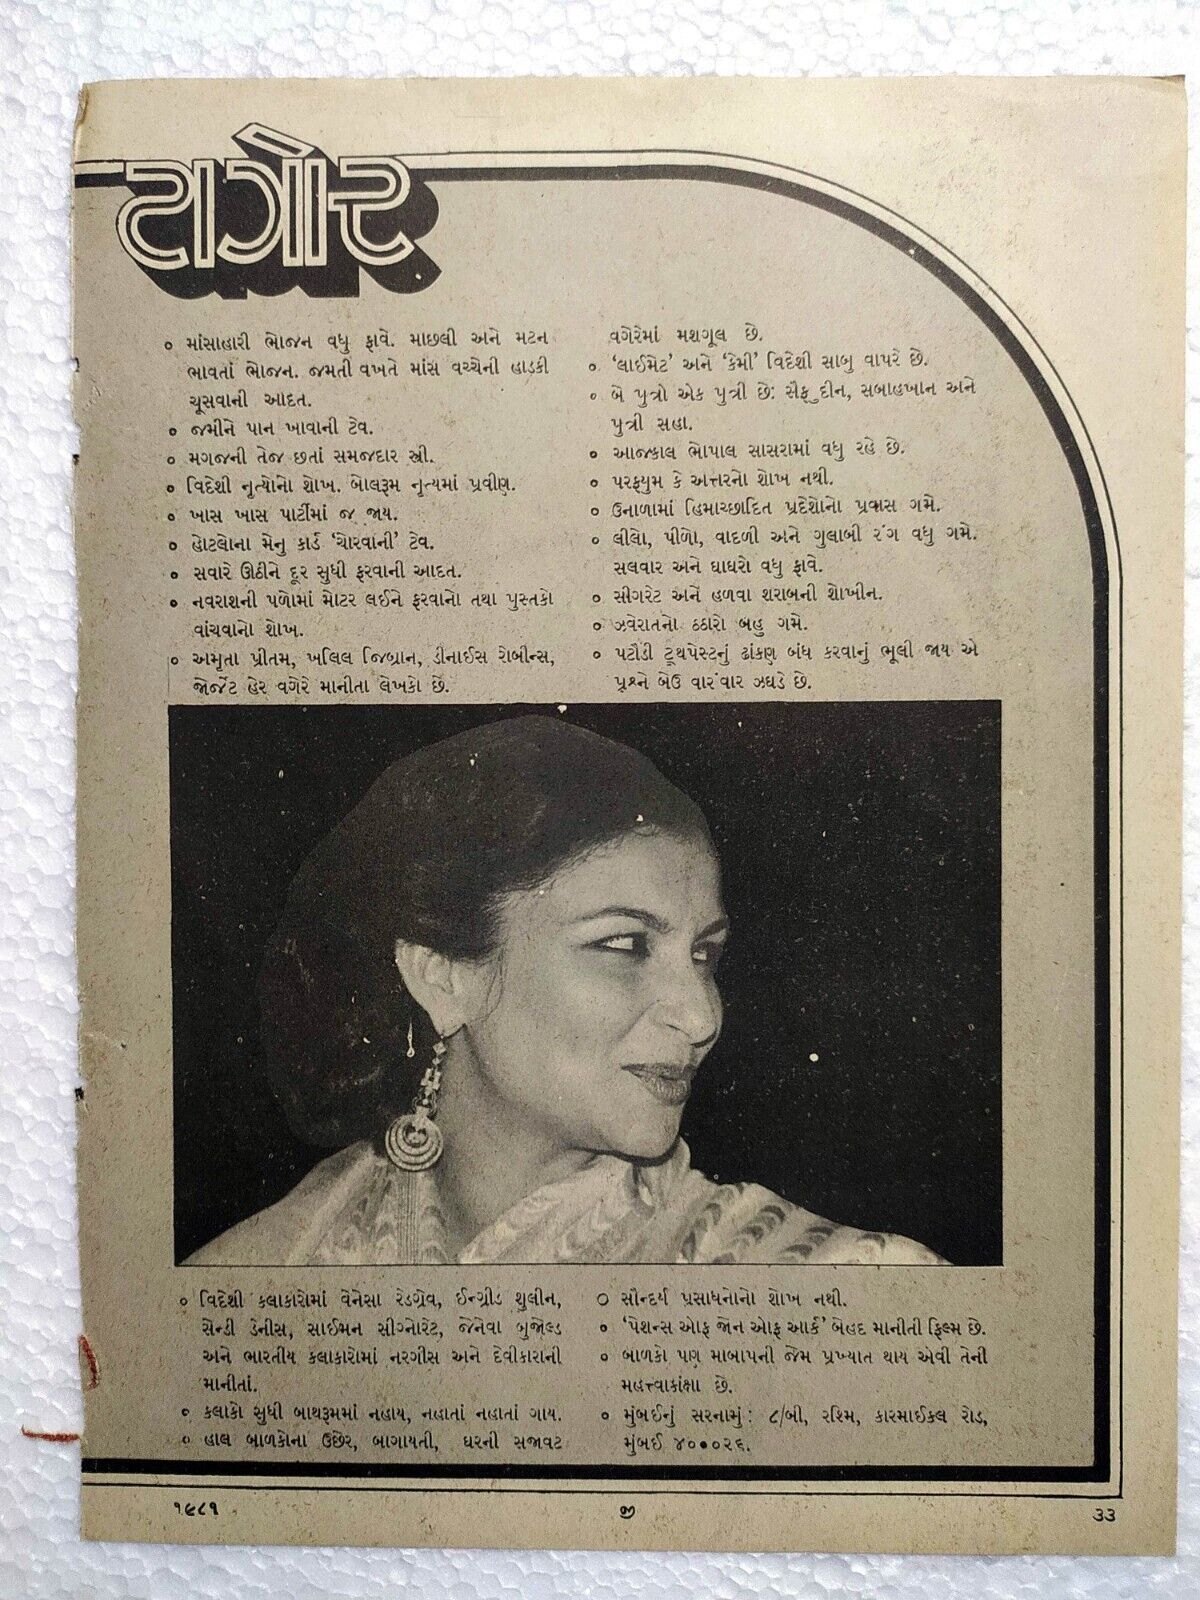 ટાગોર
૦ માંસાહારી ભોજન વધુ ફાવે. માછલી અને મટન
ભાવતાં ભોજન. જમતી વખતે માંસ વચ્ચેની હાડકી
ચૂસવાની આદત.
૦ જમીને પાન ખાવાની ટેવ.
૦ મગજની તેજ છતાં સમજદાર સ્ત્રી.
૦ વિદેશી નૃત્યોનો શોખ. બોલરૂમ નૃત્યમાં પ્રવીણ.
૦ ખાસ ખાસ પાર્ટીમાં જ જાય.
૦ હોટલોના મેનુ કાર્ડ ‘ચોરવાની’ ટેવ.
૦ સવારે ઊઠીને દૂર સુધી ફરવાની આદત.
૦ નવરાશની પળોમાં મોટર લઈને ફરવાનો તથા પુસ્તકો
વાંચવાનો શોખ.
૦ અમૃતા પ્રીતમ, ખલિલ જિબ્રાન, ડીનાઈસ રોબીન્સ,
જોર્જેટ હેર વગેરે માનીતા લેખકો છે.
વગેરેમાં મશગૂલ છે.
૦ ‘લાઈમેટ’ અને ‘કેમી’ વિદેશી સાબુ વાપરે છે.
૦ બે પુત્રો એક પુત્રી છે: સૈફુદીન, સબાહખાન અને
પુત્રી સહા.
૦ આજકાલ ભોપાલ સાસરામાં વધુ રહે છે.
૦ પરફ્યુમ કે અત્તરનો શોખ નથી.
૦ ઉનાળામાં હિમાચ્છાદિત પ્રદેશોનો પ્રવાસ ગમે.
૦ લીલો, પીળો, વાદળી અને ગુલાબી રંગ વધુ ગમે.
સલવાર અને ઘાઘરો વધુ ફાવે.
૦ સીગરેટ અને હળવા શરાબની શોખીન.
૦ ઝવેરાતનો ઠઠારો બહુ ગમે.
૦ પટૌડી ટૂથપેસ્ટનું ઢાંકણ બંધ કરવાનું ભૂલી જાય એ
પ્રશ્ને બેઉ વારંવાર ઝઘડે છે.
૦ વિદેશી કલાકારોમાં વેનેસા રેડગ્રેવ, ઈન્ગ્રીડ થુલીન,
સેન્ડી ડેનીસ, સાઈમન સીગ્નોરેટ, જેનેવા બુજોલ્ડ
અને ભારતીય કલાકારોમાં નરગીસ અને દેવીકારાની
માનીતાં.
૦ કલાકો સુધી બાથરૂમમાં નહાય, નહાતાં નહાતાં ગાય.
૦ હાલ બાળકોના ઉછેર, બાગાયતી, ઘરની સજાવટ
૦ સૌન્દર્ય પ્રસાધનોનો શોખ નથી.
૦ ‘પેશન્સ ઓફ જોન ઓફ આર્ક’ બેહદ માનીતી ફિલ્મ છે.
૦ બાળકો પણ માબાપની જેમ પ્રખ્યાત થાય એવી તેની
મહત્ત્વાકાંક્ષા છે.
૦ મુંબઈનું સરનામું: ૮/બી, રશ્મિ, કારમાઈકલ રોડ,
મુંબઈ ૪૦૦૦૨૬.
૧૯૮૧
જી
૩૩